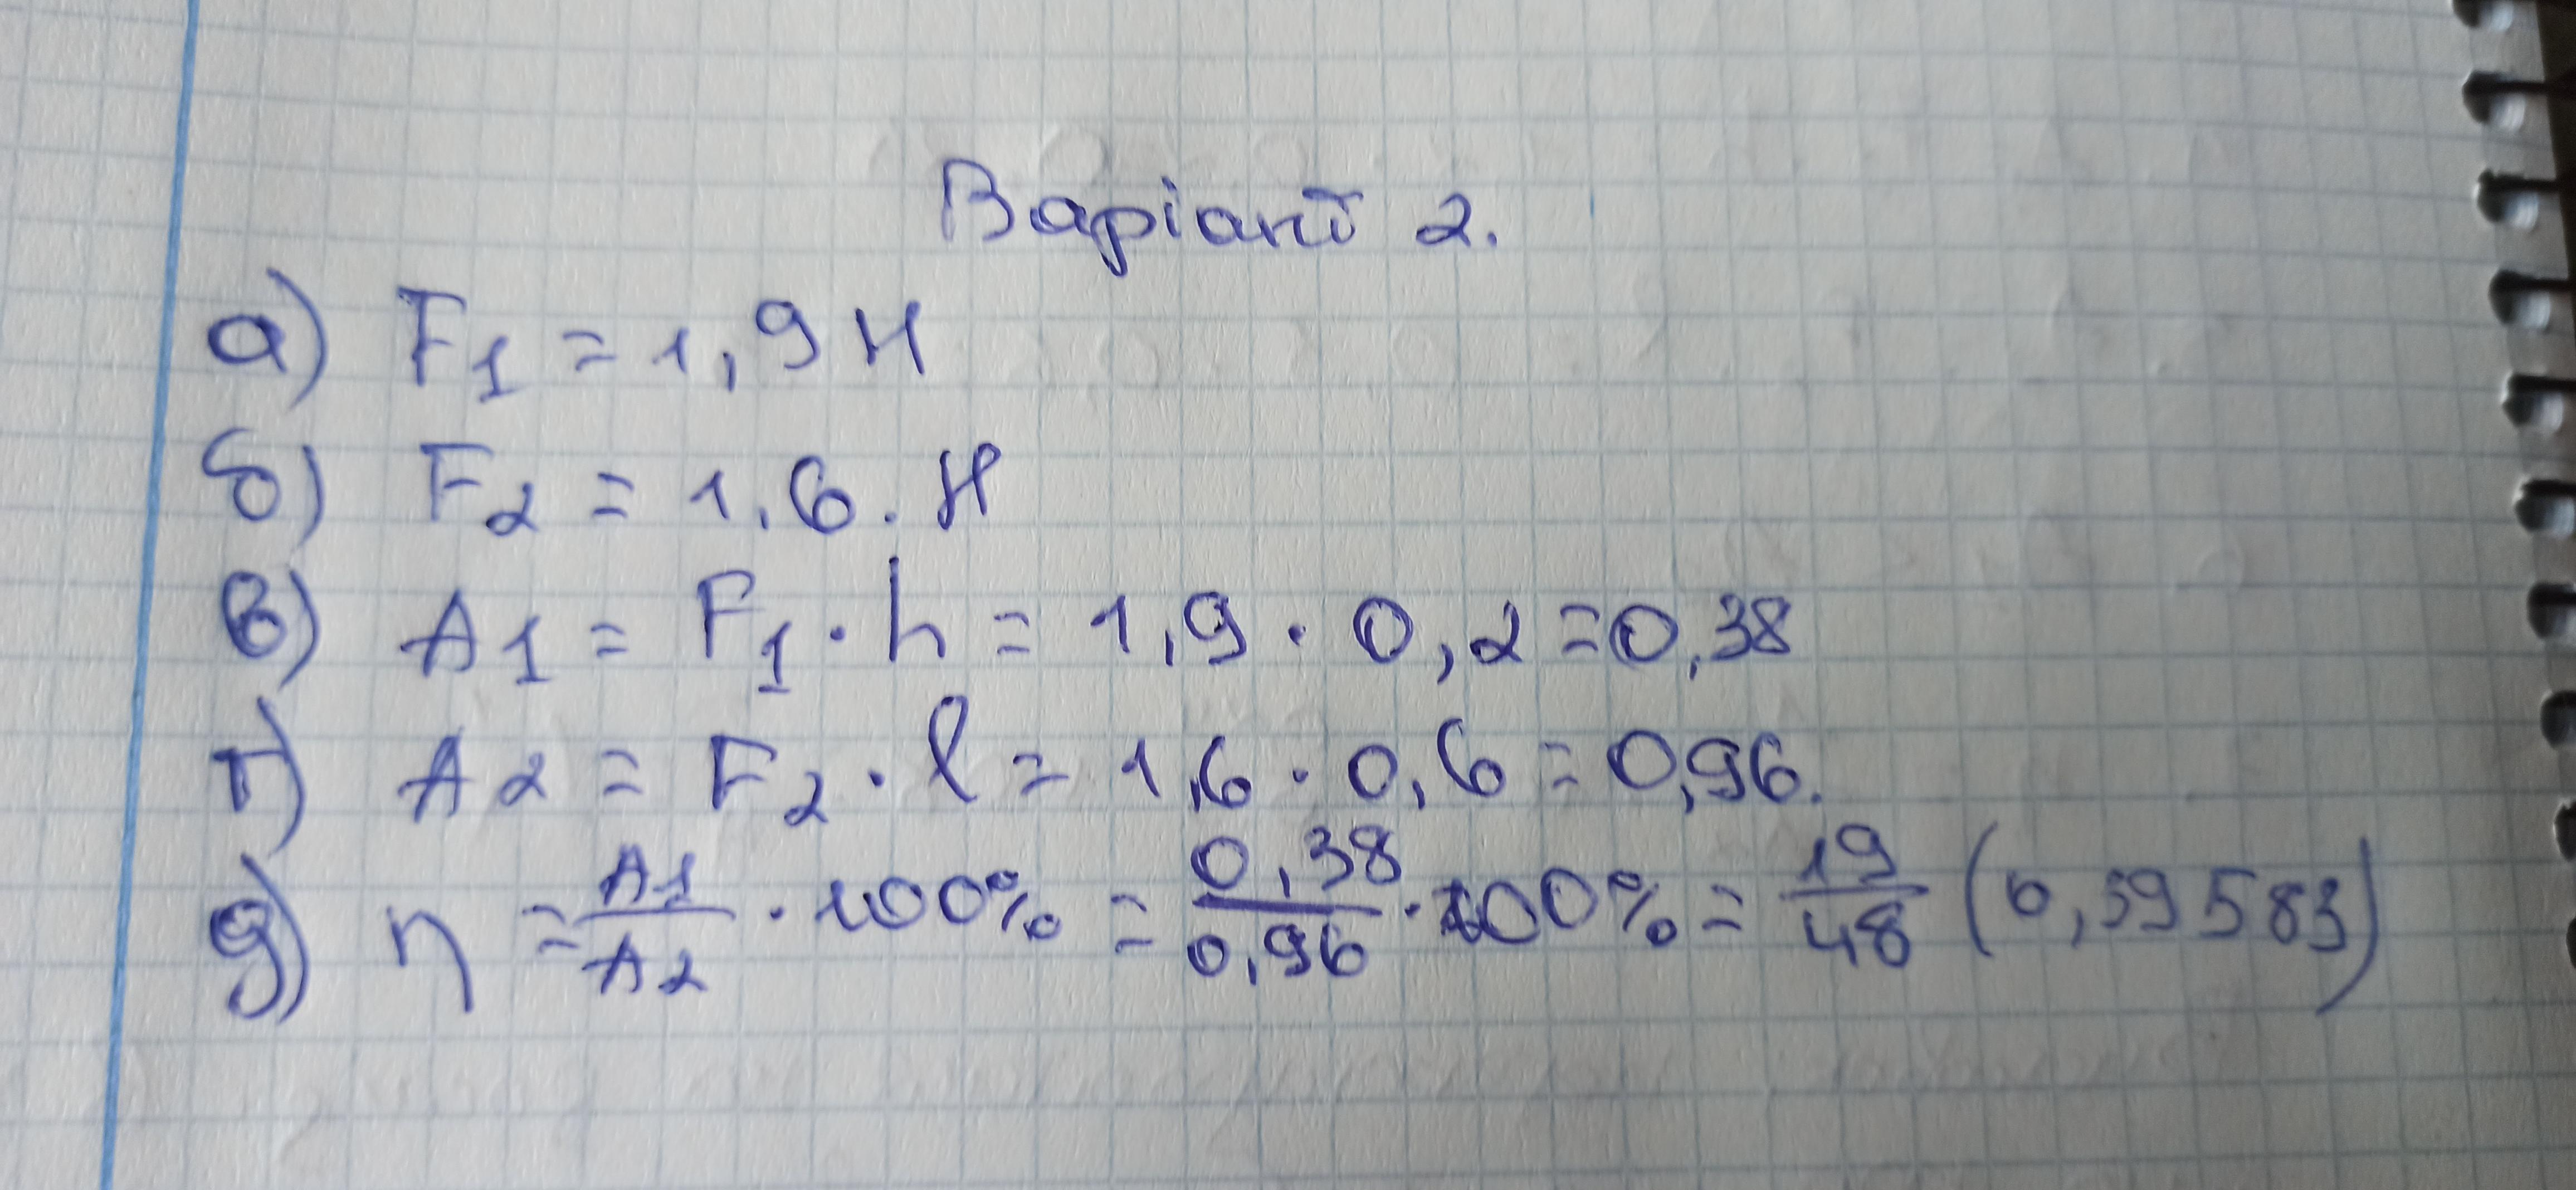 Варіант 2.
а) F₁ = 1,9 Н
б) F₂ = 1.6. Н
в) A₁ = F₁ · h = 1,9 · 0,2 = 0,38
г) A₂ = F₂ · l = 1,6 · 0,6 = 0,96.
д) η = A₁/A₂ · 100% = 0,38/0,96 · 100% = 19/48 (0,39583)